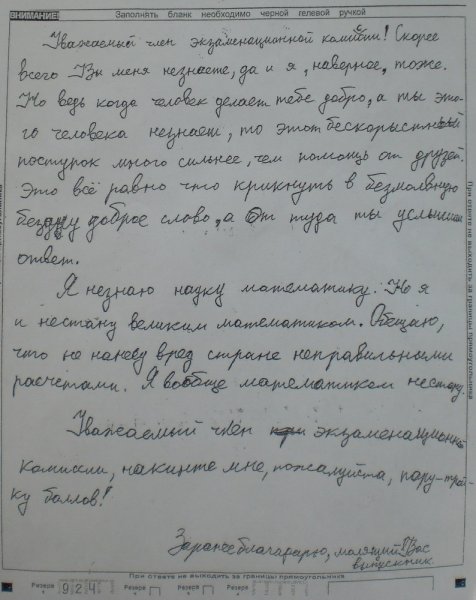 ВНИМАНИЕ! Заполнять бланк необходимо черной гелевой ручкой
Уважаемый член экзаменационной комисии! Скорее
всего Вы меня незнаете, да и я, наверное, тоже.
Но ведь когда человек делает тебе добро, а ты это-
го человека незнаеш, то этот бескорыстный
поступок много сильнее, чем помощь от друзей.
Это всё равно что крикнуть в безмолвную
бездну доброе слово, а от туда ты услышиш
ответ.
Я незнаю науку математику. Но я
и нестану великим математиком. Обещаю,
что не нанесу вред стране неправильными
расчётами. Я вообще математиком нестану.
Уважаемый член экзаменационной
комиссии, накинте мне, пожалуйста, пару-трой
ку баллов!
Заранееблагадарю, молящий Вас
выпускник
При ответе не выходить за границы прямоугольника
Резерв 924 Резерв Резерв Резерв
При ответе не выходить за границы прямоугольника